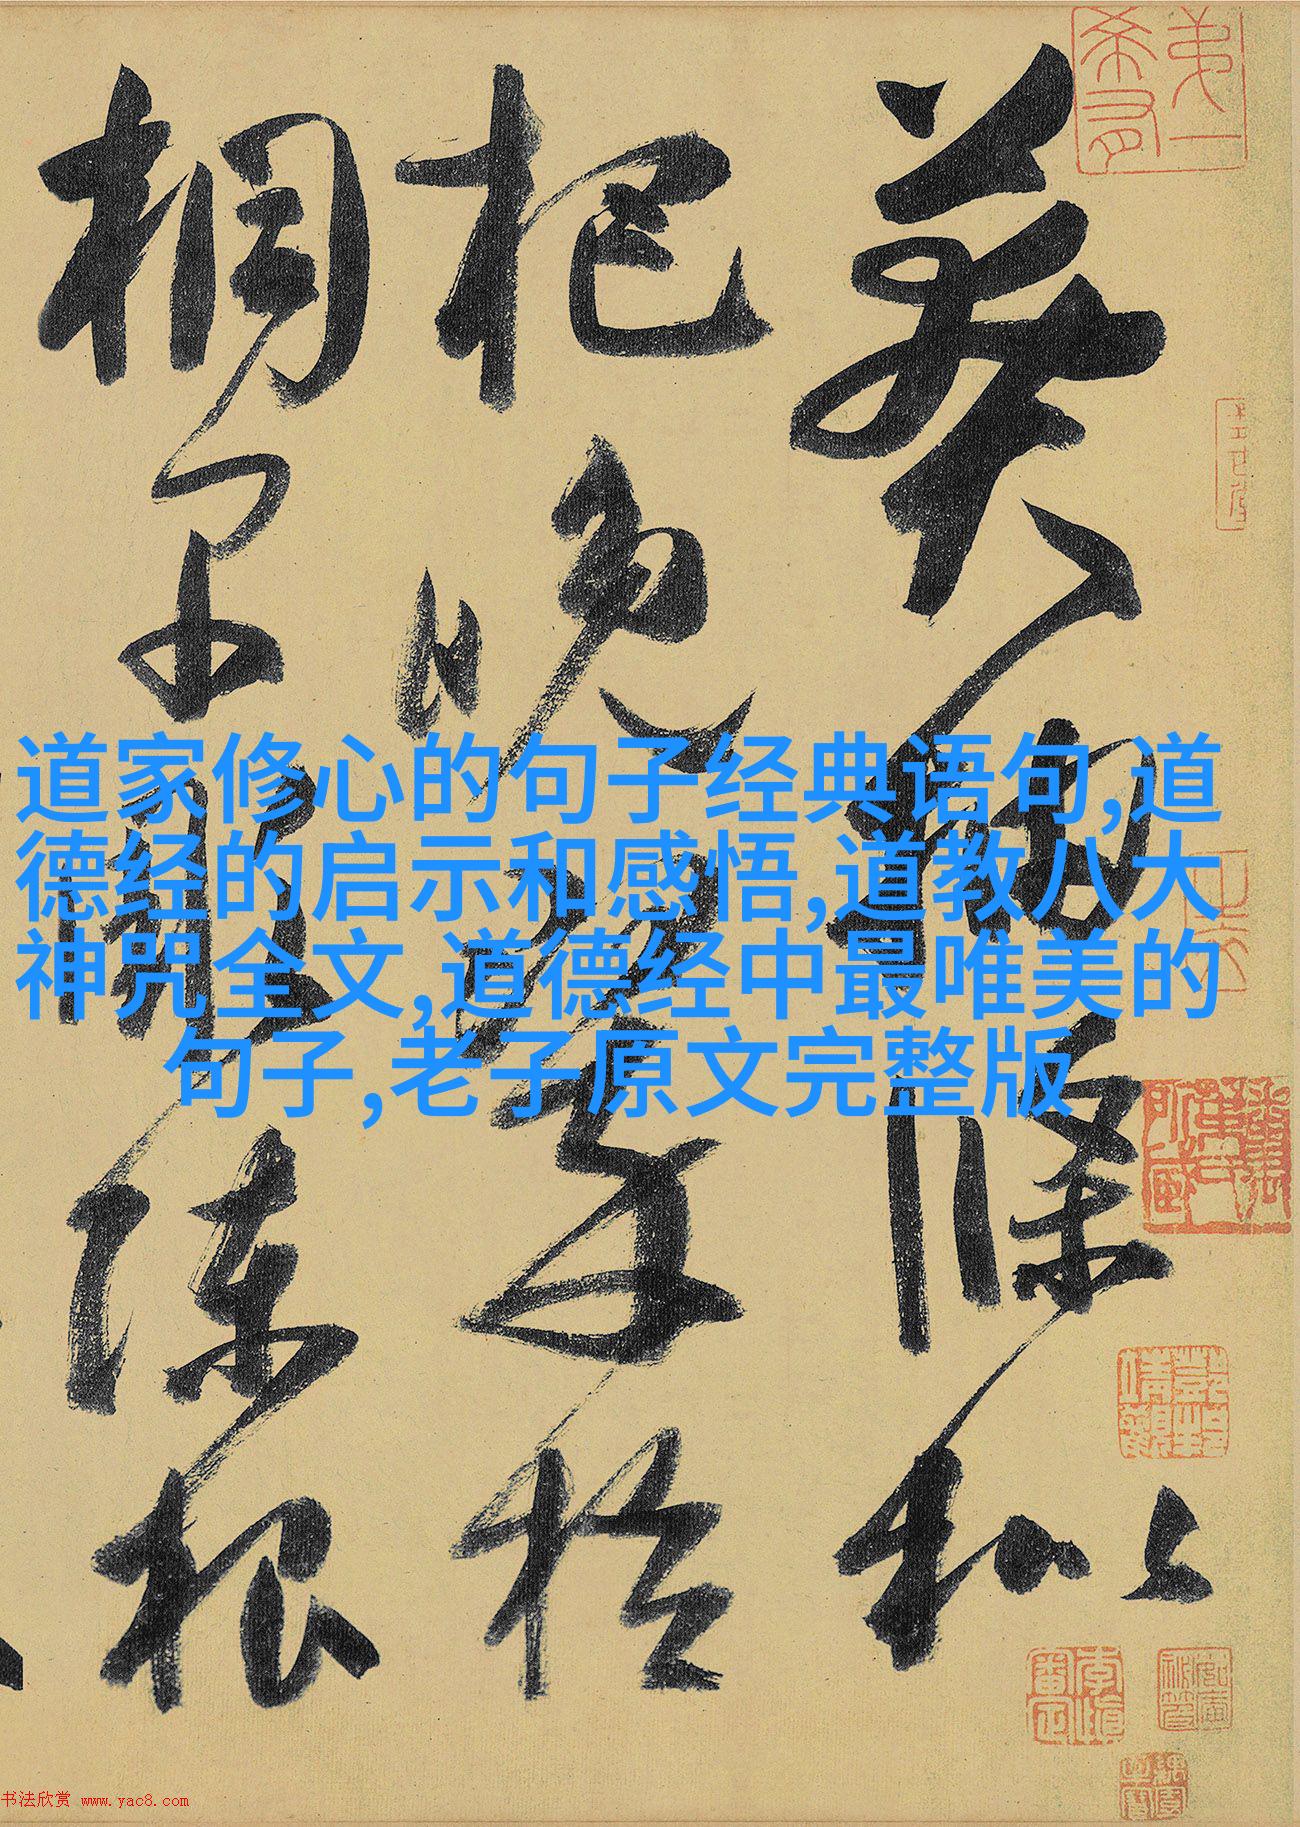 莽抽條枇
杷晚翠梧
桐早凋陳根
道家修心的句子经典语句,道
德经的启示和感悟,道教八大
神咒全文,道德经中最唯美的
句子,老子原文完整版
书法欣赏 www.yac8.com